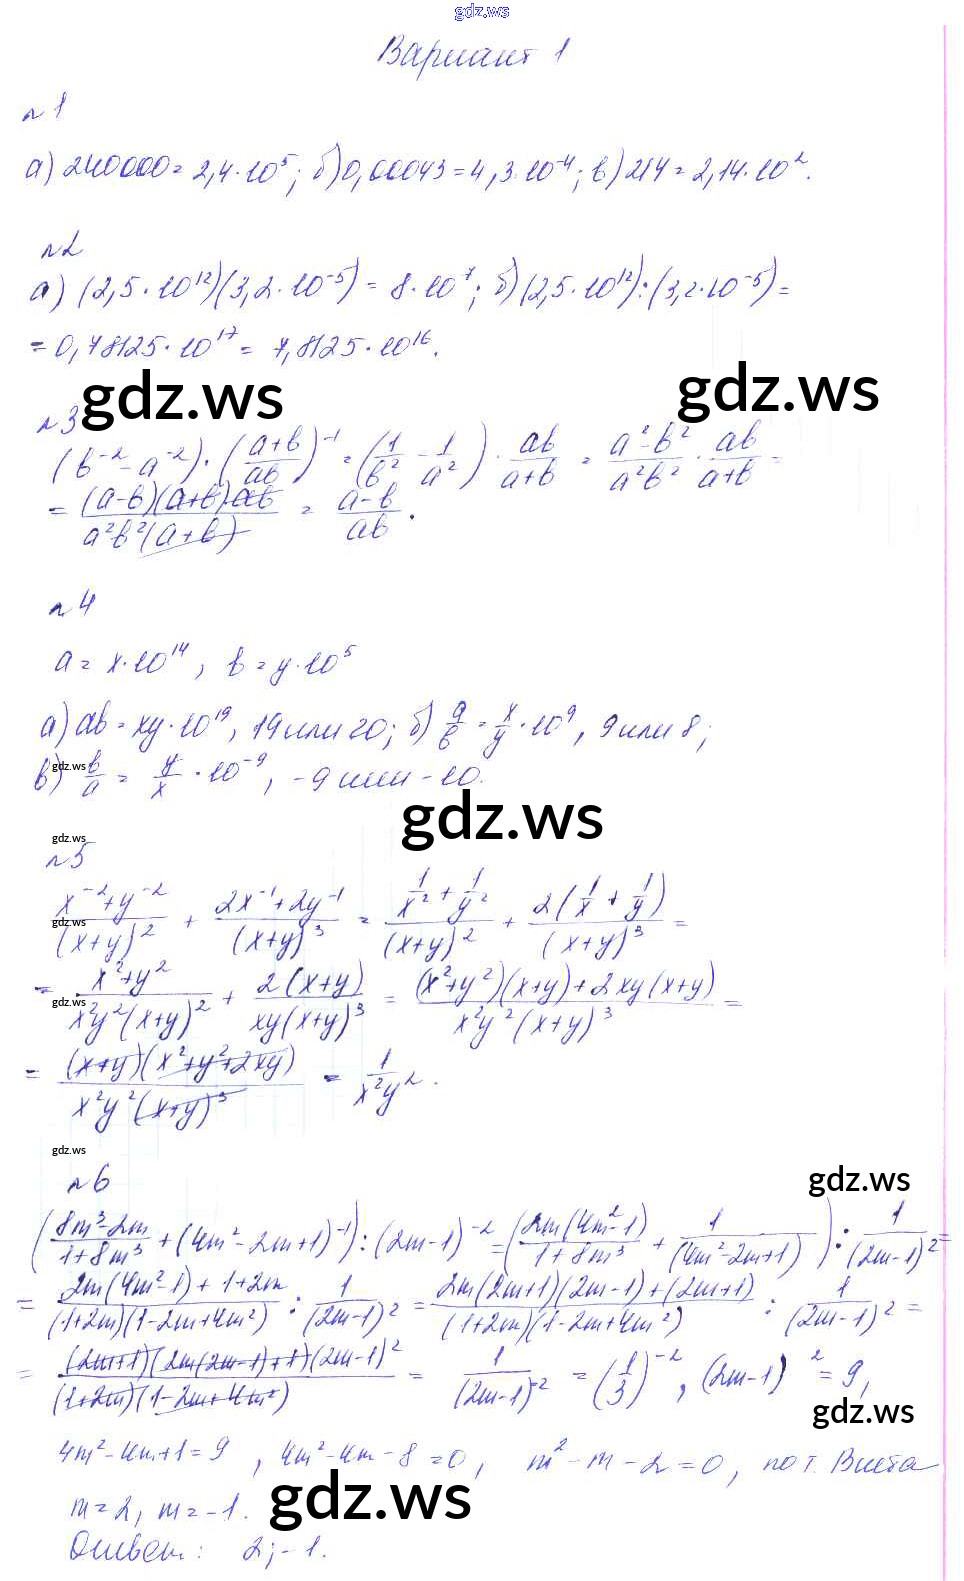 gdz.ws
Вариант 1
n1
а) 240000 = 2,4·10⁵; б) 0,00043 = 4,3·10⁻⁴; в) 214 = 2,14·10².
n2
а) (2,5·10¹²)(3,2·10⁻⁵) = 8·10⁷; б) (2,5·10¹²):(3,2·10⁻⁵) =
= 0,78125·10¹⁷ = 7,8125·10¹⁶.
gdz.ws gdz.ws
n3
(b⁻² - a⁻²)·((a+b)/(ab))⁻¹ = (1/b² - 1/a²)·ab/(a+b) = (a²-b²)/(a²b²)·ab/(a+b) =
= (a-b)(a+b)ab/(a²b²(a+b)) = (a-b)/(ab).
n4
a = x·10¹⁴, b = y·10⁵
а) ab = xy·10¹⁹, 19 или 20; б) a/b = x/y·10⁹, 9 или 8;
gdz.ws
в) b/a = y/x·10⁻⁹, -9 или -10.
gdz.ws
gdz.ws
n5
(x⁻²+y⁻²)/(x+y)² + (2x⁻¹+2y⁻¹)/(x+y)³ = (1/x² + 1/y²)/(x+y)² + 2(1/x + 1/y)/(x+y)³ =
gdz.ws
= (x²+y²)/(x²y²(x+y)²) + 2(x+y)/(xy(x+y)³) = ((x²+y²)(x+y)+2xy(x+y))/(x²y²(x+y)³) =
gdz.ws
= (x+y)(x²+y²+2xy)/(x²y²(x+y)³) = 1/(x²y²).
gdz.ws
n6
gdz.ws
((8m³-2m)/(1+8m³) + (4m²-2m+1)⁻¹):(2m-1)⁻² = (2m(4m²-1)/(1+8m³) + 1/(4m²-2m+1)) : 1/(2m-1)² =
= (2m(4m²-1)+1+2m)/((1+2m)(1-2m+4m²)) : 1/(2m-1)² = (2m(2m+1)(2m-1)+(2m+1))/((1+2m)(1-2m+4m²)) : 1/(2m-1)² =
= (2m+1)(2m(2m-1)+1)(2m-1)²/((1+2m)(1-2m+4m²)) = 1/(2m-1)⁻² = (1/3)⁻², (2m-1)² = 9,
gdz.ws
4m²-4m+1=9, 4m²-4m-8=0, m²-m-2=0, по т. Виета
m=2, m=-1.
gdz.ws
Ответ: 2; -1.